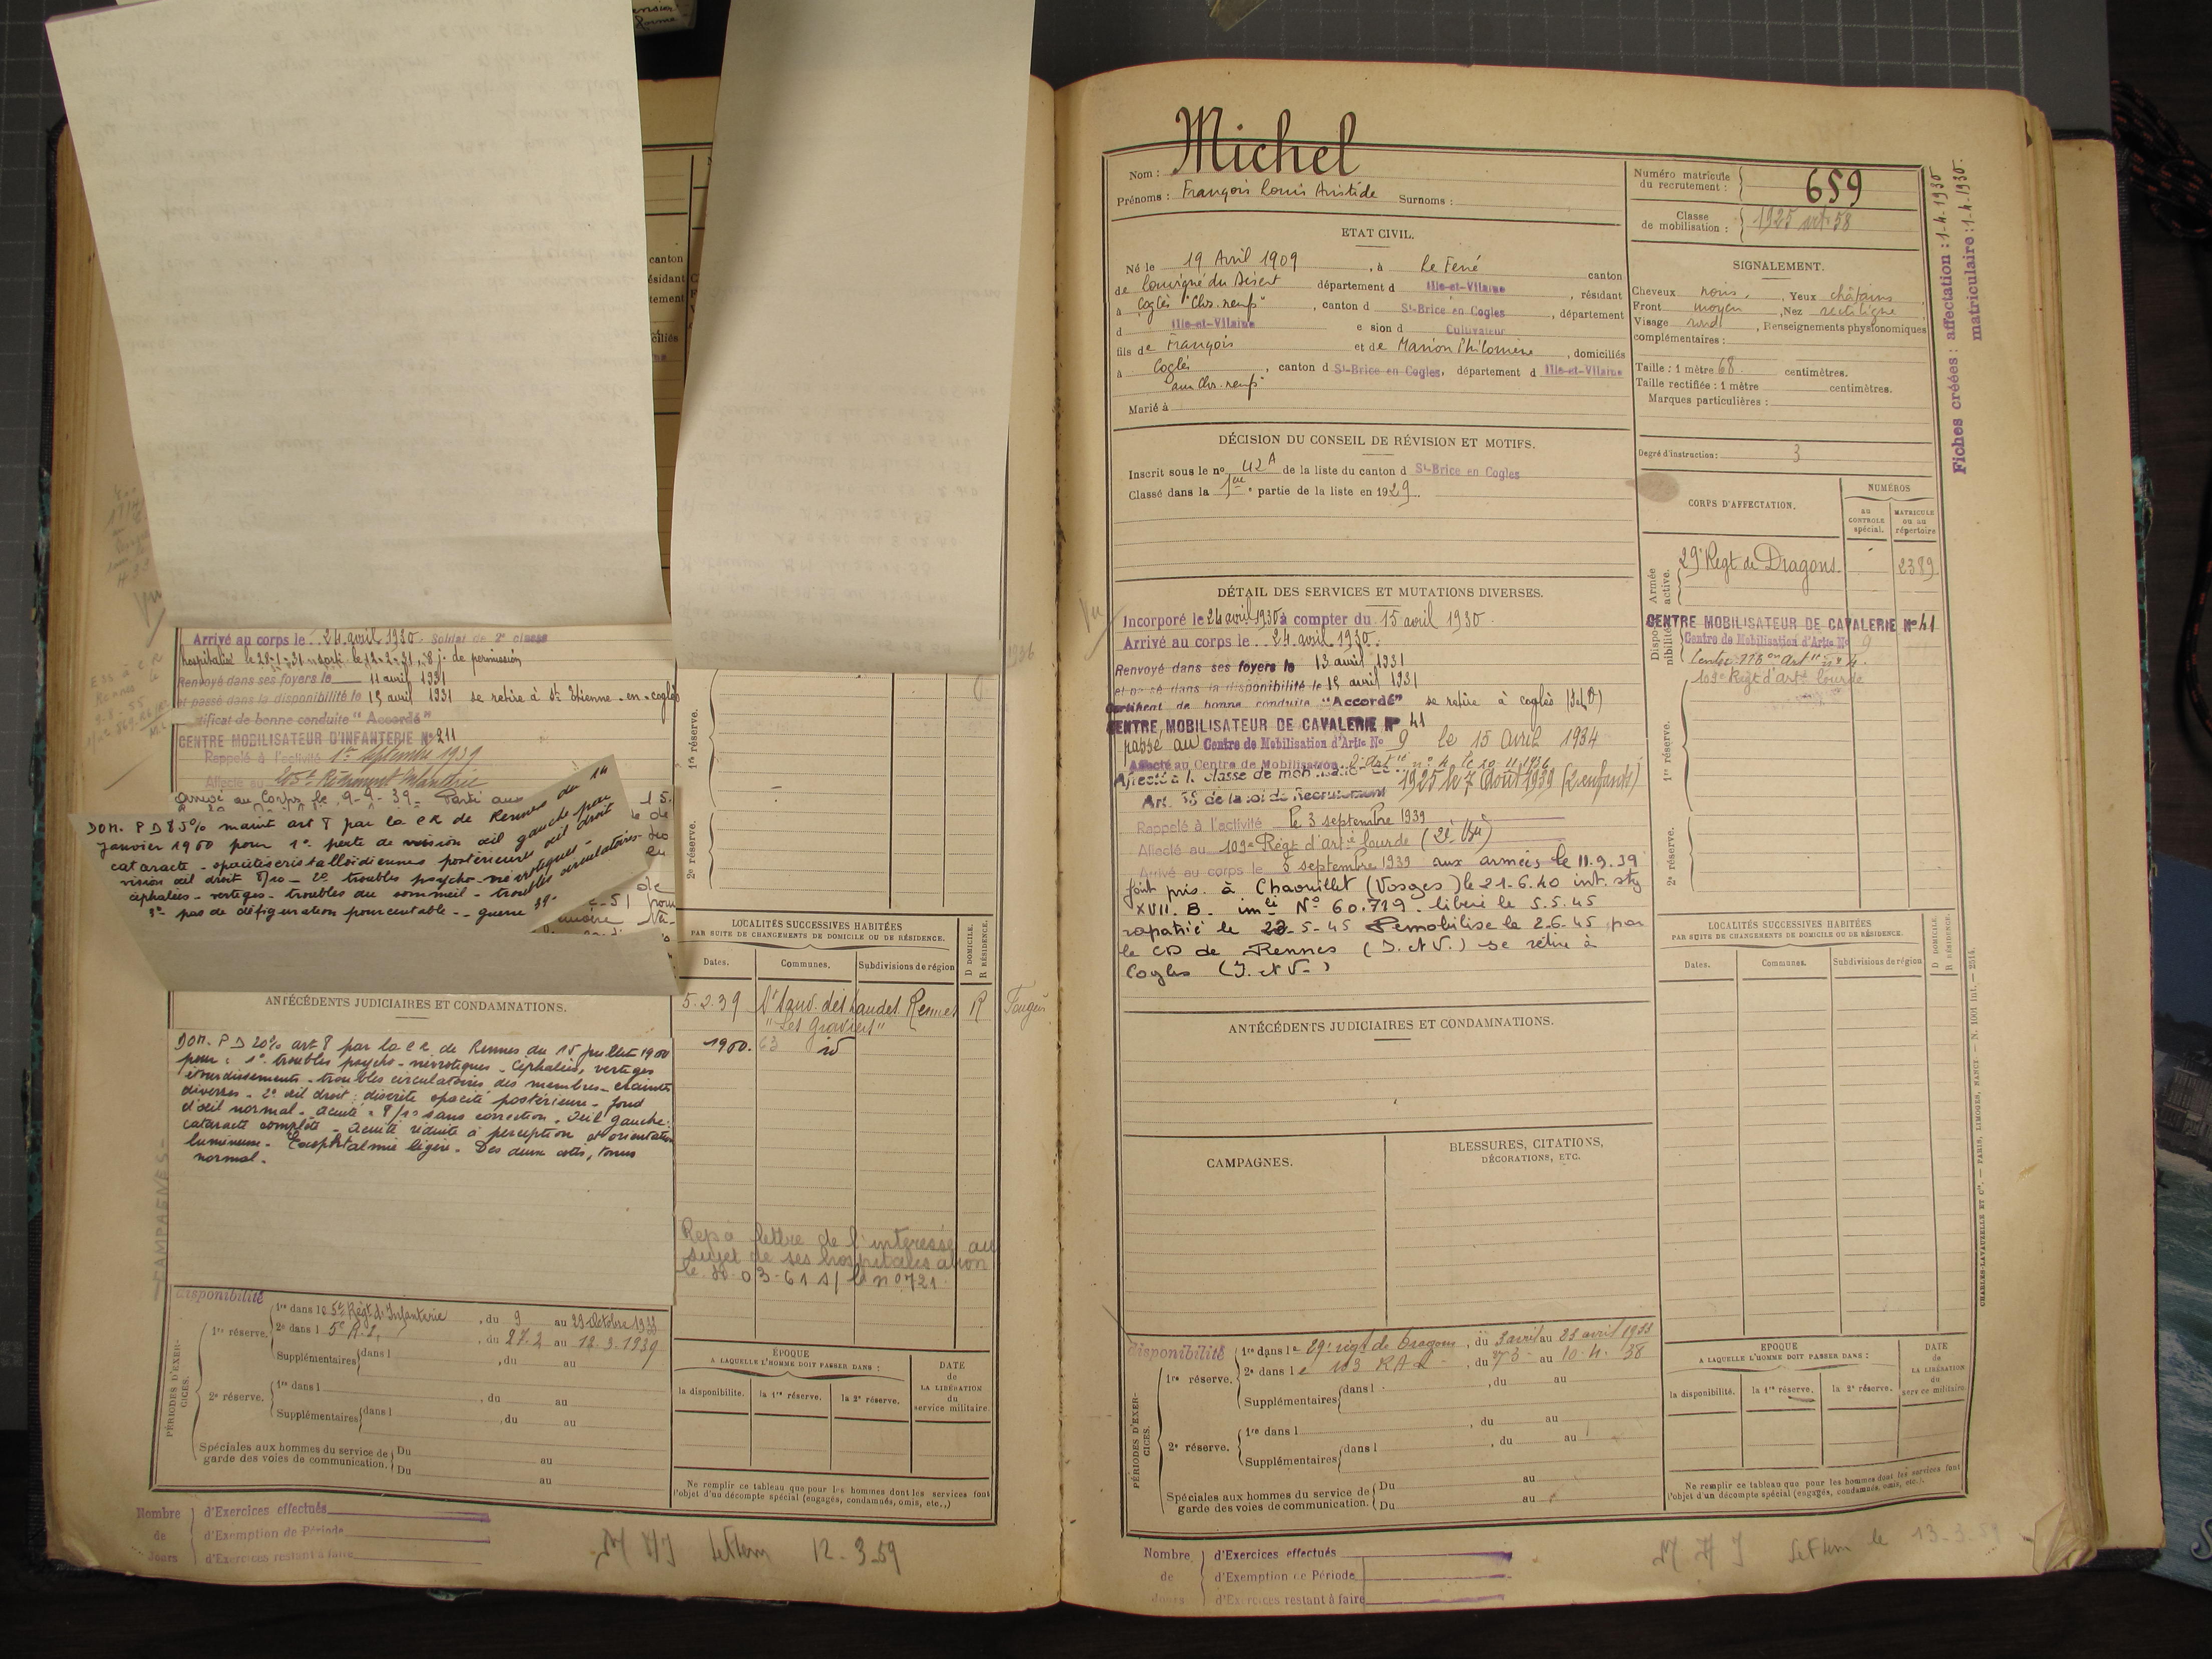 canton
ésidant
tement
ciliés
Arrivé au corps le 24 avril 1930. Soldat de 2e classe
hospitalisé le 28-1-31 sorti le 12-2-31, 8 j. de permission
Renvoyé dans ses foyers le 11 avril 1931
et passé dans la disponibilité le 15 avril 1931 se retire à St Etienne-en-coglès
tificat de bonne conduite "Accordé"
CENTRE MOBILISATEUR D'INFANTERIE No 211
Rappelé à l'activité 1er septembre 1939
Affecté au Régiment Infanterie
arrivé au Corps le 9-9-39. Parti aux
DOM. P D 85% art 8 par la CR de Rennes du 14
janvier 1960 pour 1o- perte de vision œil gauche par
cataracte - postérieures œil droit
vision œil droit 8/10 - 2o- troubles psycho-névrotiques -
céphalées - vertiges - troubles du sommeil - troubles circulatoires -
3o- pas de défiguration pourcentable - guerre 39-
ANTÉCÉDENTS JUDICIAIRES ET CONDAMNATIONS.
DOM. P D 20% art 8 par la CR de Rennes du 15 juillet 1960
pour : 1o- troubles psycho-névrotiques - Céphalées, vertiges
étourdissements - troubles circulatoires des membres - craintes
diverses - 2o œil droit : discrète opacité postérieure - fond
d'œil normal - acuité = 8/10 sans correction - œil gauche :
cataracte complète - acuité réduite à perception et orientation
lumineuse - légère - Des deux cotés, tonus
normal -
CAMPAGNES
disponibilité
PÉRIODES D'EXERCICES.
1re réserve. 1re dans le 5e Régt d'Infanterie, du 9 au 29 Octobre 1933
2e dans l 5e R.I., du 27.2 au 12.3.1939
Supplémentaires dans l , du au
2e réserve. 1re dans l , du au
Supplémentaires dans l , du au
Spéciales aux hommes du service de garde des voies de communication. Du au
Du au
Nombre de Jours
d'Exercices effectués
d'Exemption de Période
d'Exercices restant à faire
1re réserve.
2e réserve.
LOCALITÉS SUCCESSIVES HABITÉES
PAR SUITE DE CHANGEMENTS DE DOMICILE OU DE RÉSIDENCE.
D DOMICILE.
R RÉSIDENCE.
Dates. Communes. Subdivisions de région
5.2.39 St Sauv. des Landes Rennes R Fougères
"Les Graviers"
1960. 63 id
Rep à lettre de l'intéressé au
sujet de ses hospitalisation
le 30-03-61 s/ le no 721
ÉPOQUE
A LAQUELLE L'HOMME DOIT PASSER DANS :
la disponibilité. la 1re réserve. la 2e réserve.
DATE
de
LA LIBÉRATION
du
service militaire.
Ne remplir ce tableau que pour les hommes dont les services font
l'objet d'un décompte spécial (engagés, condamnés, omis, etc.,)
12-3-59
Nom : Michel
Prénoms : François Louis Aristide Surnoms :
Numéro matricule du recrutement : 659
Classe de mobilisation : 1925 art 58
Fiches créées : affectation : 1-4-1930
matriculaire : 1-4-1930.
ETAT CIVIL.
Né le 19 Avril 1909, à Le Ferré canton
de Louvigné du Désert département d Ille-et-Vilaine, résidant
à Coglès "Chr. neufs", canton d St-Brice en Cogles, département
d Ille-et-Vilaine e sion d Cultivateur
fils de François et de Marion Philomène, domiciliés
à Coglès, canton d St-Brice en Cogles, département d Ille-et-Vilaine
aux Chr. neufs
Marié à
SIGNALEMENT.
Cheveux noirs, Yeux châtains
Front moyen, Nez rectiligne
Visage rond, Renseignements physionomiques
complémentaires :
Taille : 1 mètre 68 centimètres.
Taille rectifiée : 1 mètre centimètres.
Marques particulières :
Degré d'instruction : 3
DÉCISION DU CONSEIL DE RÉVISION ET MOTIFS.
Inscrit sous le no 42 A de la liste du canton d St-Brice en Cogles
Classé dans la 1ère partie de la liste en 1929.
CORPS D'AFFECTATION.
NUMÉROS
AU CONTROLE spécial.
MATRICULE ou au répertoire
Armée active.
29e Regt de Dragons 2389
CENTRE MOBILISATEUR DE CAVALERIE No 41
Disponibilité
Centre de Mobilisation d'Artie No 9
Centre Mob on Artie no 4.
103e Régt d'Artie lourde
1re réserve.
2e réserve.
DÉTAIL DES SERVICES ET MUTATIONS DIVERSES.
Vu
Incorporé le 24 avril 1930 à compter du 15 avril 1930.
Arrivé au corps le 24 avril 1930.
Renvoyé dans ses foyers le 13 avril 1931
et passé dans la disponibilité le 15 avril 1931
Certificat de bonne conduite "Accordé" se retire à coglès (I et V)
CENTRE MOBILISATEUR DE CAVALERIE No 41
passé au Centre de Mobilisation d'Artie No 9 le 15 avril 1934
Affecté au Centre de Mobilisation d'Artie no 4 le 10-11-1936
Affecté à la classe de mobilisation de 1925 le 7 Août 1939 (2 enfants)
Art. 58 de la loi de Recrutement
Rappelé à l'activité le 3 septembre 1939
Affecté au 109e Régt d'artie lourde (2e Bie)
Arrivé au corps le 5 septembre 1939 aux armées le 11.9.39
fait pris. à Chaouillet (Vosges) le 21-6.40 int. stg
XVII. B. imle No 60.719. libéré le 5.5.45
rapatrié le 22-5-45 Démobilisé le 2.6.45 par
le CD de Rennes (I. et V.) se retire à
Cogles (I. et V-)
ANTÉCÉDENTS JUDICIAIRES ET CONDAMNATIONS.
CAMPAGNES.
BLESSURES, CITATIONS,
DÉCORATIONS, ETC.
LOCALITÉS SUCCESSIVES HABITÉES
PAR SUITE DE CHANGEMENTS DE DOMICILE OU DE RÉSIDENCE.
D DOMICILE.
R RÉSIDENCE.
Dates. Communes. Subdivisions de région
disponibilité
PÉRIODES D'EXERCICES.
1re réserve. 1re dans le 29e régt de Dragons, du 3 avril au 23 avril 1933
2e dans le 103 RAL, du 273 au 10.4.38
Supplémentaires dans l , du au
2e réserve. 1re dans l , du au
Supplémentaires dans l , du au
Spéciales aux hommes du service de garde des voies de communication. Du au
Du au
EPOQUE
A LAQUELLE L'HOMME DOIT PASSER DANS :
la disponibilité. la 1re réserve. la 2e réserve.
DATE
de
LA LIBÉRATION
du
service militaire.
Ne remplir ce tableau que pour les hommes dont les services font
l'objet d'un décompte spécial (engagés, condamnés, omis, etc.,).
CHARLES-LAVAUZELLE ET Cie. — PARIS, LIMOGES, NANCY. — N. 1001 Int. — 2514.
Nombre de Jours
d'Exercices effectués
d'Exemption de Période
d'Exercices restant à faire
le 13-3-59